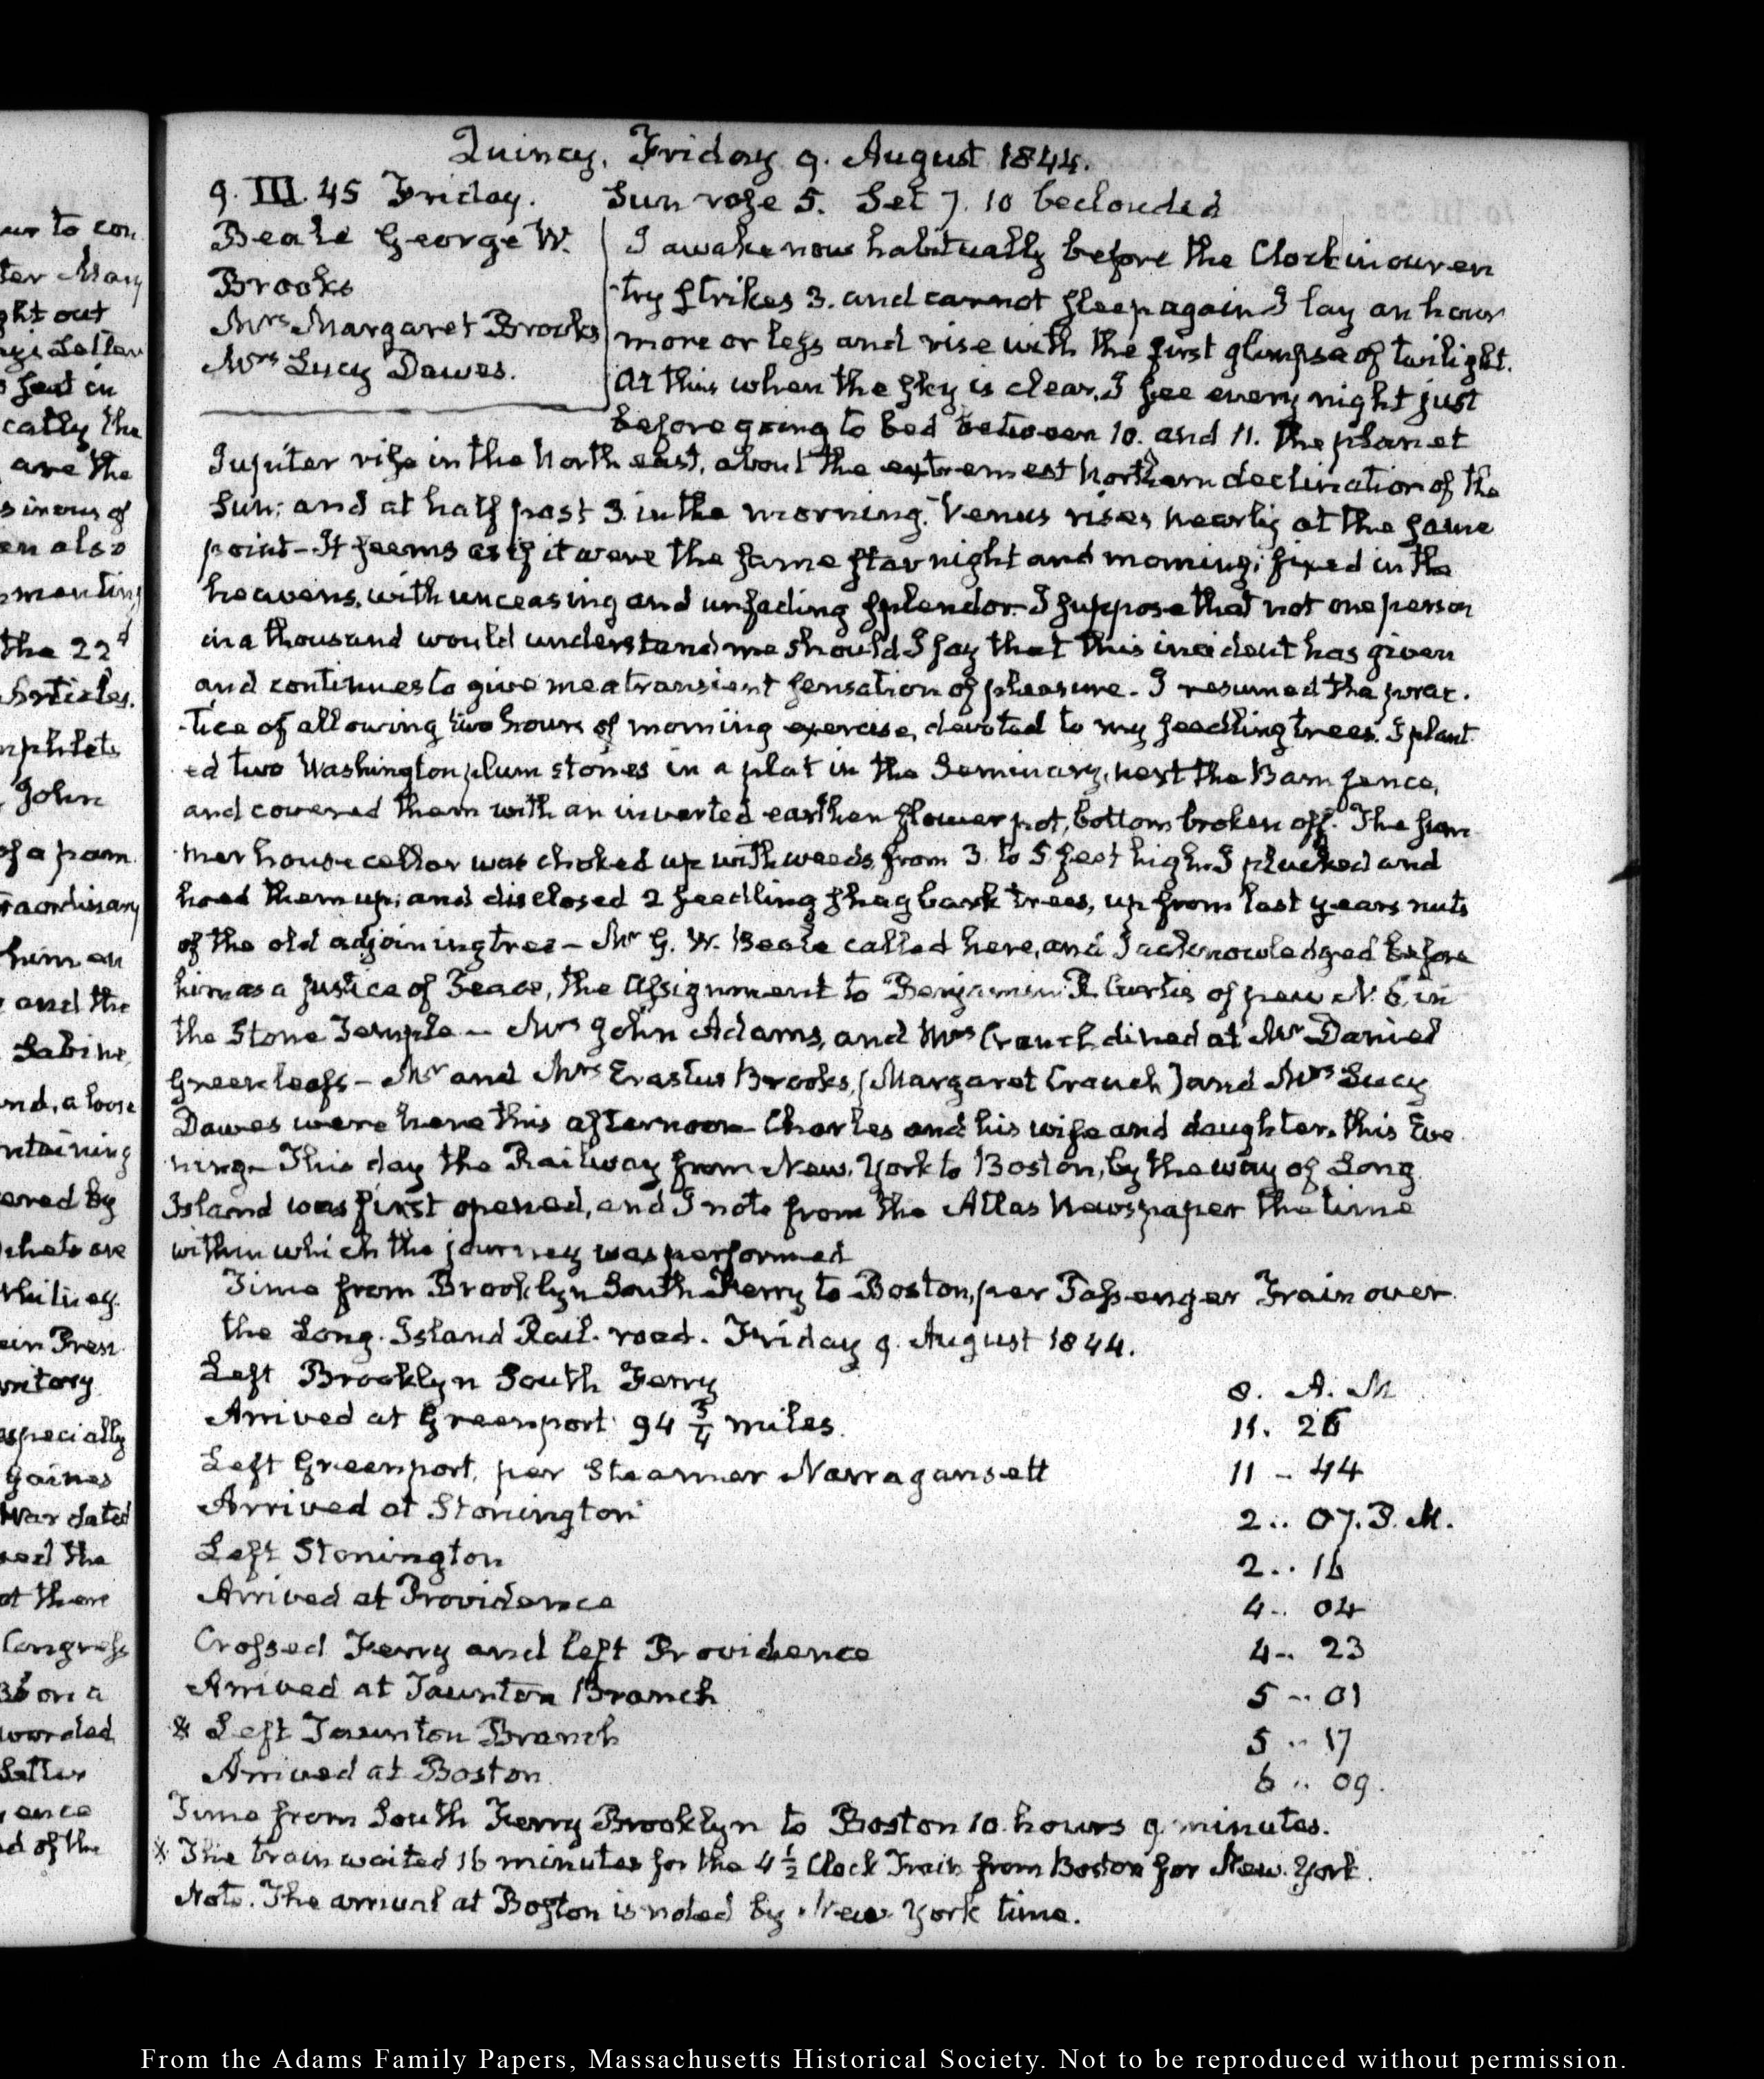 Quincy, Friday 9. August 1844.
9. III. 45 Friday. Sun rose 5. Set 7. 10 beclouded
Beale George W.
Brooks
Mrs Margaret Brooks
Mrs Lucy Dawes.
I awake now habitually before the Clock in our en
-try strikes 3. and cannot sleep again I lay an hour
more or less and rise with the first glimpse of twilight.
At this when the sky is clear, I see every night just
before going to bed between 10. and 11. the planet
Jupiter rise in the North east, about the extremest Northern declination of the
Sun; and at half past 3. in the morning. Venus rises nearly at the same
point - It seems as if it were the same star night and morning; fixed in the
heavens, with unceasing and unfading splendor - I suppose that not one person
in a thousand would understand me should I say that this incident has given
and continues to give me a transient sensation of pleasure - I resumed the prac-
-tice of allowing two hours of morning exercise, devoted to my seedling trees. I plant
ed two Washington plum stones in a plat in the Seminary, next the Barn fence,
and covered them with an inverted earthen flower pot, bottom broken off. The sum
-mer house cellar was choked up with weeds from 3. to 5 feet high. I plucked and
hoed them up; and disclosed 2 seedling shagbark trees, up from last years nuts
of the old adjoining tree - Mr G. W. Beale called here, and I acknowledged before
him as a justice of Peace, the Assignment to Benjamin R. Curtis of pew N. 6 in
the Stone Temple - Mrs John Adams, and Mrs Crouch dined at Mr Daniel
Greenleafs - Mr and Mrs Erastus Brooks, (Margaret Crauch) and Mrs Lucy
Dawes were here this afternoon - Charles and his wife and daughter, this Eve
-ning - This day the Railway from New-York to Boston, by the way of Long
Island was first opened, and I note from the Atlas Newspaper the time
within which the journey was performed
Time from Brooklyn South Ferry to Boston, per Passenger Train over
the Long-Island Rail-road. Friday 9. August 1844.
Left Brooklyn South Ferry 8. A. M
Arrived at Greenport 94 3/4 miles. 11. 26
Left Greenport, per Steamer Narragansett 11 - 44
Arrived at Stonington 2.. 07. P. M.
Left Stonington 2.. 16
Arrived at Providence 4.. 04
Crossed Ferry and left Providence 4.. 23
Arrived at Taunton Branch 5 .. 01
* Left Taunton Branch 5 .. 17
Arrived at Boston 6 .. 09.
Time from South Ferry Brooklyn to Boston 10 hours 9 minutes.
* The train waited 16 minutes for the 4 1/2 Clock Train from Boston for New-York.
Note. The arrival at Boston is noted by New York time.
From the Adams Family Papers, Massachusetts Historical Society. Not to be reproduced without permission.